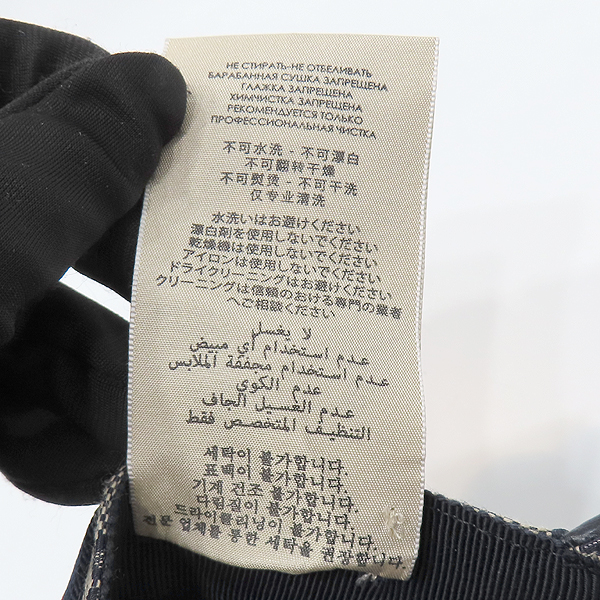 НЕ СТИРАТЬ-НЕ ОТБЕЛИВАТЬ
БАРАБАННАЯ СУШКА ЗАПРЕЩЕНА
ГЛАЖКА ЗАПРЕЩЕНА
ХИМЧИСТКА ЗАПРЕЩЕНА
РЕКОМЕНДУЕТСЯ ТОЛЬКО
ПРОФЕССИОНАЛЬНАЯ ЧИСТКА
不可水洗 - 不可漂白
不可翻转干燥
不可熨烫 - 不可干洗
仅专业清洗
水洗いはお避けください
漂白剤を使用しないでください
乾燥機は使用しないでください
アイロンは使用しないでください
ドライクリーニングはお避けください
クリーニングは信頼のおける専門の業者
へご相談ください
لا يغسل
عدم استخدام أي مبيض
عدم استخدام مجففة الملابس
عدم الكوي
عدم الغسيل الجاف
التنظيف المتخصص فقط
세탁이 불가합니다.
표백이 불가합니다.
기계 건조 불가합니다.
다림질이 불가합니다.
드라이클리닝이 불가합니다.
전문 업체를 통한 세탁을 권장합니다.